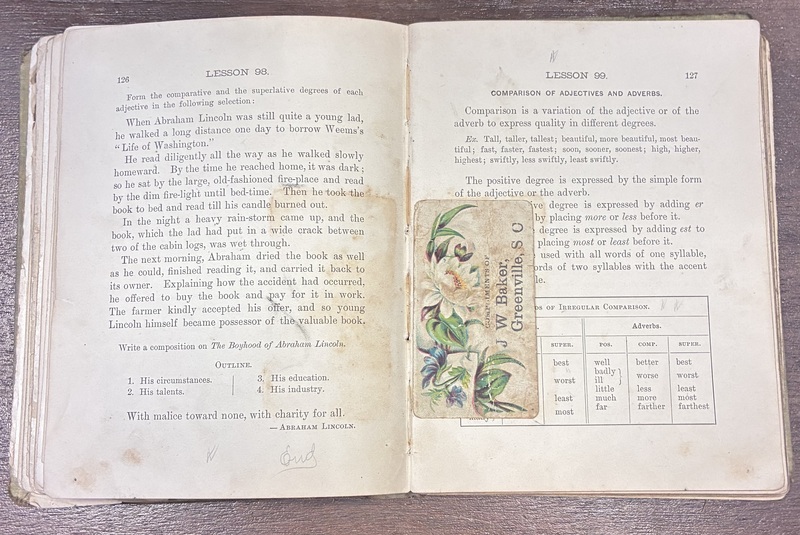 126
LESSON 98.
Form the comparative and the superlative degrees of each
adjective in the following selection:
When Abraham Lincoln was still quite a young lad,
he walked a long distance one day to borrow Weems's
"Life of Washington."
He read diligently all the way as he walked slowly
homeward. By the time he reached home, it was dark;
so he sat by the large, old-fashioned fire-place and read
by the dim fire-light until bed-time. Then he took the
book to bed and read till his candle burned out.
In the night a heavy rain-storm came up, and the
book, which the lad had put in a wide crack between
two of the cabin logs, was wet through.
The next morning, Abraham dried the book as well
as he could, finished reading it, and carried it back to
its owner. Explaining how the accident had occurred,
he offered to buy the book and pay for it in work.
The farmer kindly accepted his offer, and so young
Lincoln himself became possessor of the valuable book.
Write a composition on The Boyhood of Abraham Lincoln.
OUTLINE.
1. His circumstances.
2. His talents.
3. His education.
4. His industry.
With malice toward none, with charity for all.
— ABRAHAM LINCOLN.
End
LESSON 99.
127
COMPARISON OF ADJECTIVES AND ADVERBS.
Comparison is a variation of the adjective or of the
adverb to express quality in different degrees.
Ex. Tall, taller, tallest; beautiful, more beautiful, most beau-
tiful; fast, faster, fastest; soon, sooner, soonest; high, higher,
highest; swiftly, less swiftly, least swiftly.
The positive degree is expressed by the simple form
of the adjective or the adverb.
degree is expressed by adding er
by placing more or less before it.
degree is expressed by adding est to
placing most or least before it.
used with all words of one syllable,
of two syllables with the accent
OF IRREGULAR COMPARISON.
Adverbs.
SUPER. POS. COMP. SUPER.
best well better best
worst badly } worse worst
ill
little less least
least much more most
most far farther farthest
COMPLIMENTS OF
J W Baker,
Greenville, S C